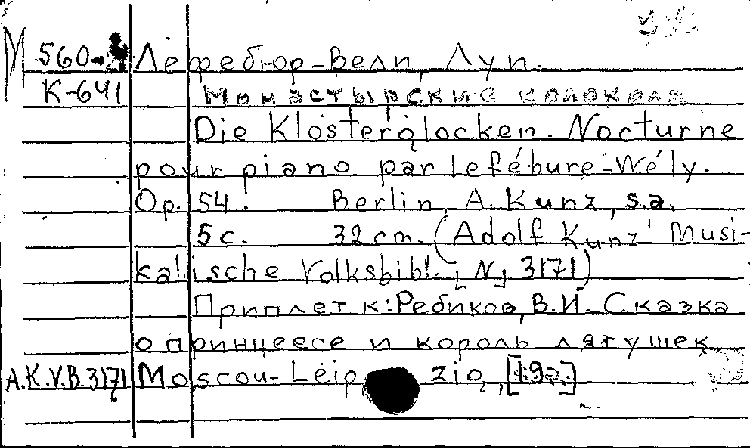 М 560- Лефебюр-Вели, Луи.
К-641 Монастырские колокола
Die Klosterglocken. Nocturne
pour piano par Lefébure-Wély.
Op. 54. Berlin, A. Kunz, s.a.
5 с. 32 cm. (Adolf Kunz' Musi-
kalische Volksbibl., N, 3171)
Приплет к: Ребиков, В.И. Сказка
о принцессе и король лягушек
A.K.V.B 3171 Moscou-Leipzig, [19-]